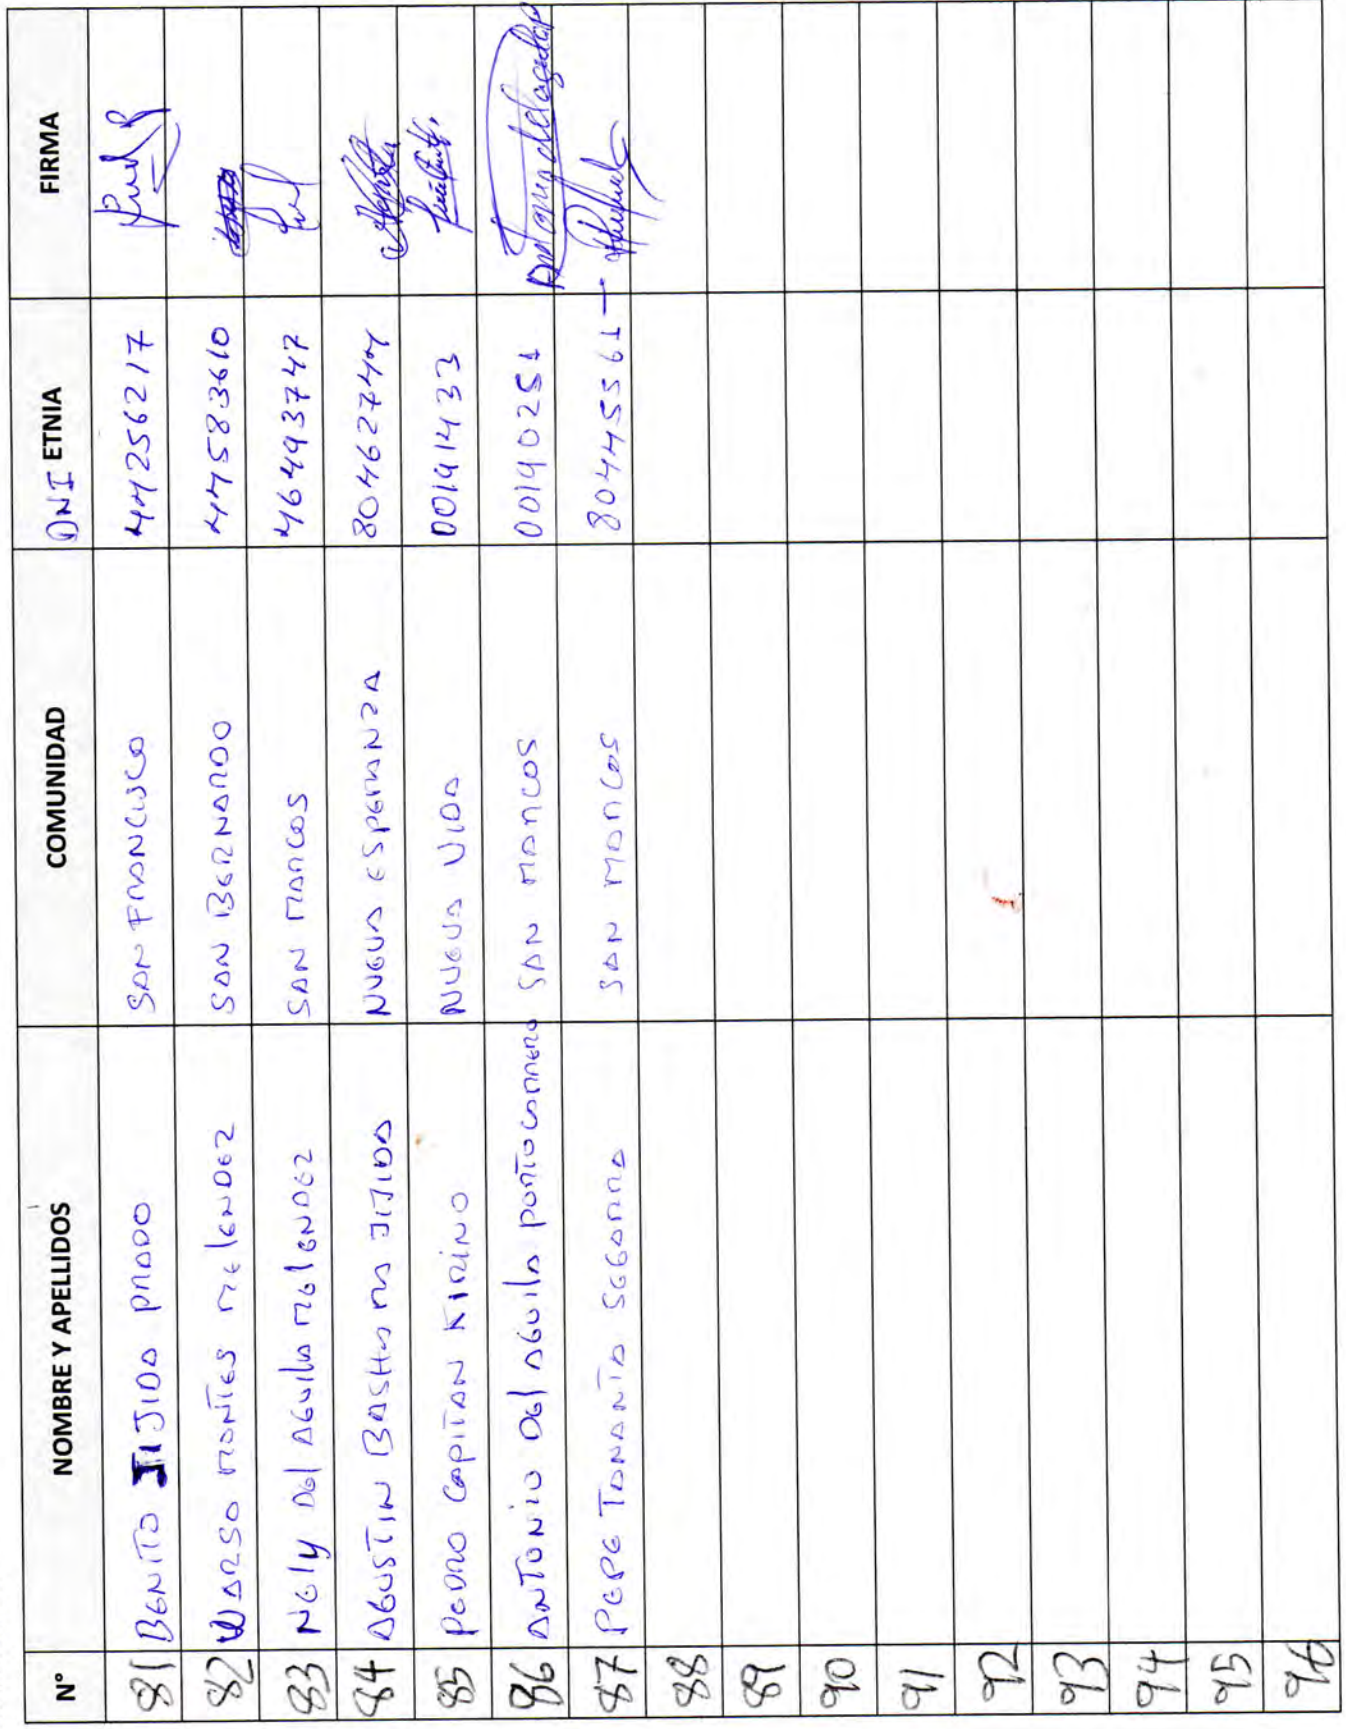 N° NOMBRE Y APELLIDOS COMUNIDAD DNI ETNIA FIRMA
81 BENITO JIJIDA PRADO SAN FRANCISCO 44256217
82 WARSO MONTES MELENDEZ SAN BERNARDO 44583610
83 NELY DEL AGUILA MELENDEZ SAN MARCOS 46493747
84 AGUSTIN JIJIDA NUEVA ESPERANZA 80462744
85 PEDRO CAPITAN KIRINO NUEVA VIDA 00191433
86 ANTONIO DEL AGUILA PORTOCARRERO SAN MARCOS 00190251
87 PEPE SAN MARCOS 80445561
88
89
90
91
92
93
94
95
96